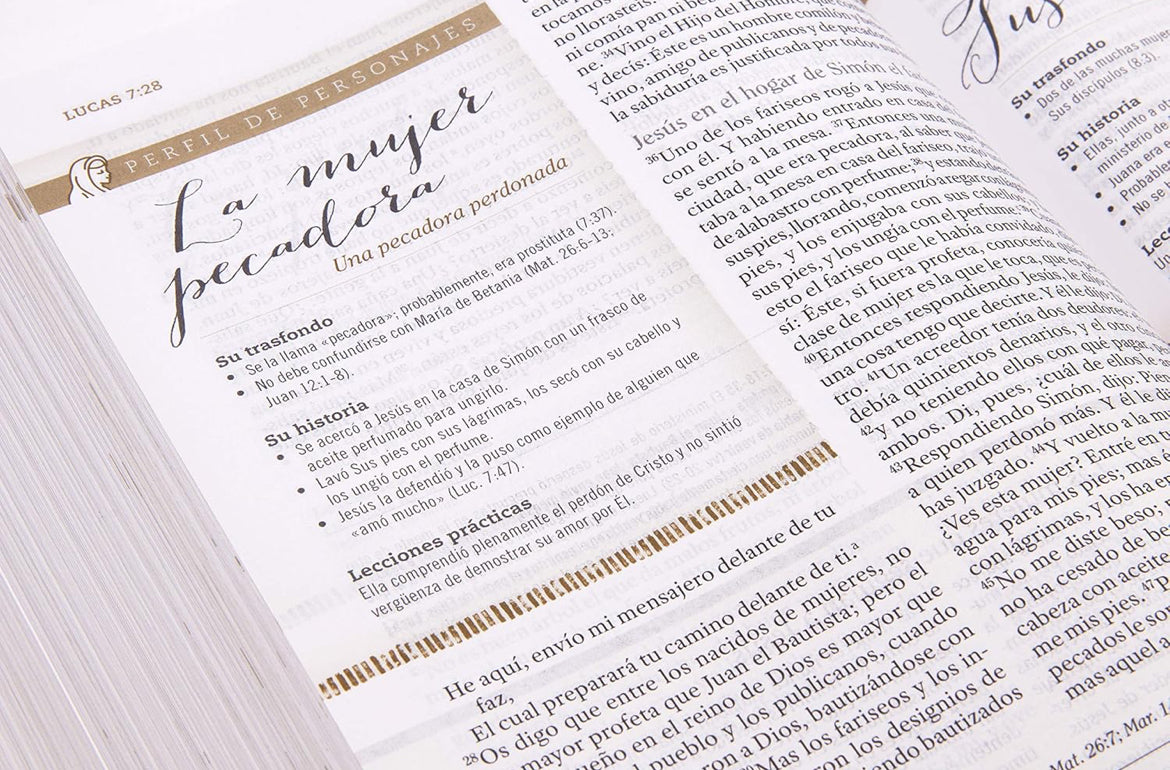 LUCAS 7:28
PERFIL DE PERSONAJES
La mujer
pecadora
Una pecadora perdonada
Su trasfondo
• Se llama «pecadora»; probablemente, era prostituta (7:37).
• No debe confundirse con María de Betania (Mat. 26:6-13;
Juan 12:1-8).
Su historia
• Se acercó a Jesús en la casa de Simón con un frasco de
aceite perfumado para ungirlo.
• Lavó Sus pies con sus lágrimas, los secó con su cabello y
los ungió con el perfume.
• Jesús la defendió y la puso como ejemplo de alguien que
«amó mucho» (Luc. 7:47).
Lecciones prácticas
Ella comprendió plenamente el perdón de Cristo y no sintió
vergüenza de demostrar su amor por Él.
He aquí, envío mi mensajero delante de tu
faz,
El cual preparará tu camino delante de ti.ª
28Os digo que entre los nacidos de mujeres, no
mayor profeta que Juan el Bautista; pero el
ueño en el reino de Dios es mayor que
el pueblo y los publicanos, cuando
on a Dios, bautizándose con
30Mas los fariseos y los in-
on los designios de
iendo bautizados
en la p
tocamos
no llorasteis.
ni comía pan ni be
ne. 34Vino el Hijo del Hombre, que
y decís: Éste es un hombre comilón y
vino, amigo de publicanos y de pecado
la sabiduría es justificada por todos su
Jesús en el hogar de Simón el fa
36Uno de los fariseos rogó a Jesús que
con él. Y habiendo entrado en casa de
se sentó a la mesa. 37Entonces una
ciudad, que era pecadora, al saber qu
taba a la mesa en casa del fariseo, tra
de alabastro con perfume; 38y estando
sus pies, llorando, comenzó a regar con lág
pies, y los enjugaba con sus cabellos
sus pies, y los ungía con el perfume. 39C
esto el fariseo que le había convidado
sí: Éste, si fuera profeta, conocería q
clase de mujer es la que le toca, que es
40Entonces respondiendo Jesús, le dij
una cosa tengo que decirte. Y él le dijo:
tro. 41Un acreedor tenía dos deudores:
debía quinientos denarios, y el otro c
42y no teniendo ellos con qué pagar,
ambos. Di, pues, ¿cuál de ellos le a
43Respondiendo Simón, dijo: Pie
a quien perdonó más. Y él le d
has juzgado. 44Y vuelto a la m
¿Ves esta mujer? Entré en
agua para mis pies; mas é
con lágrimas, y los ha e
45No me diste beso;
no ha cesado de be
cabeza con aceite
me mis pies. 47P
pecados le so
mas aquel a
Mat. 26:7; Mar. 1
Su trasfondo
• Dos de las muchas muje
Sus discípulos (8:3).
Su historia
• Ellas, junto a o
ministerio de
• Juana era
• Probable
• No se
Lecc